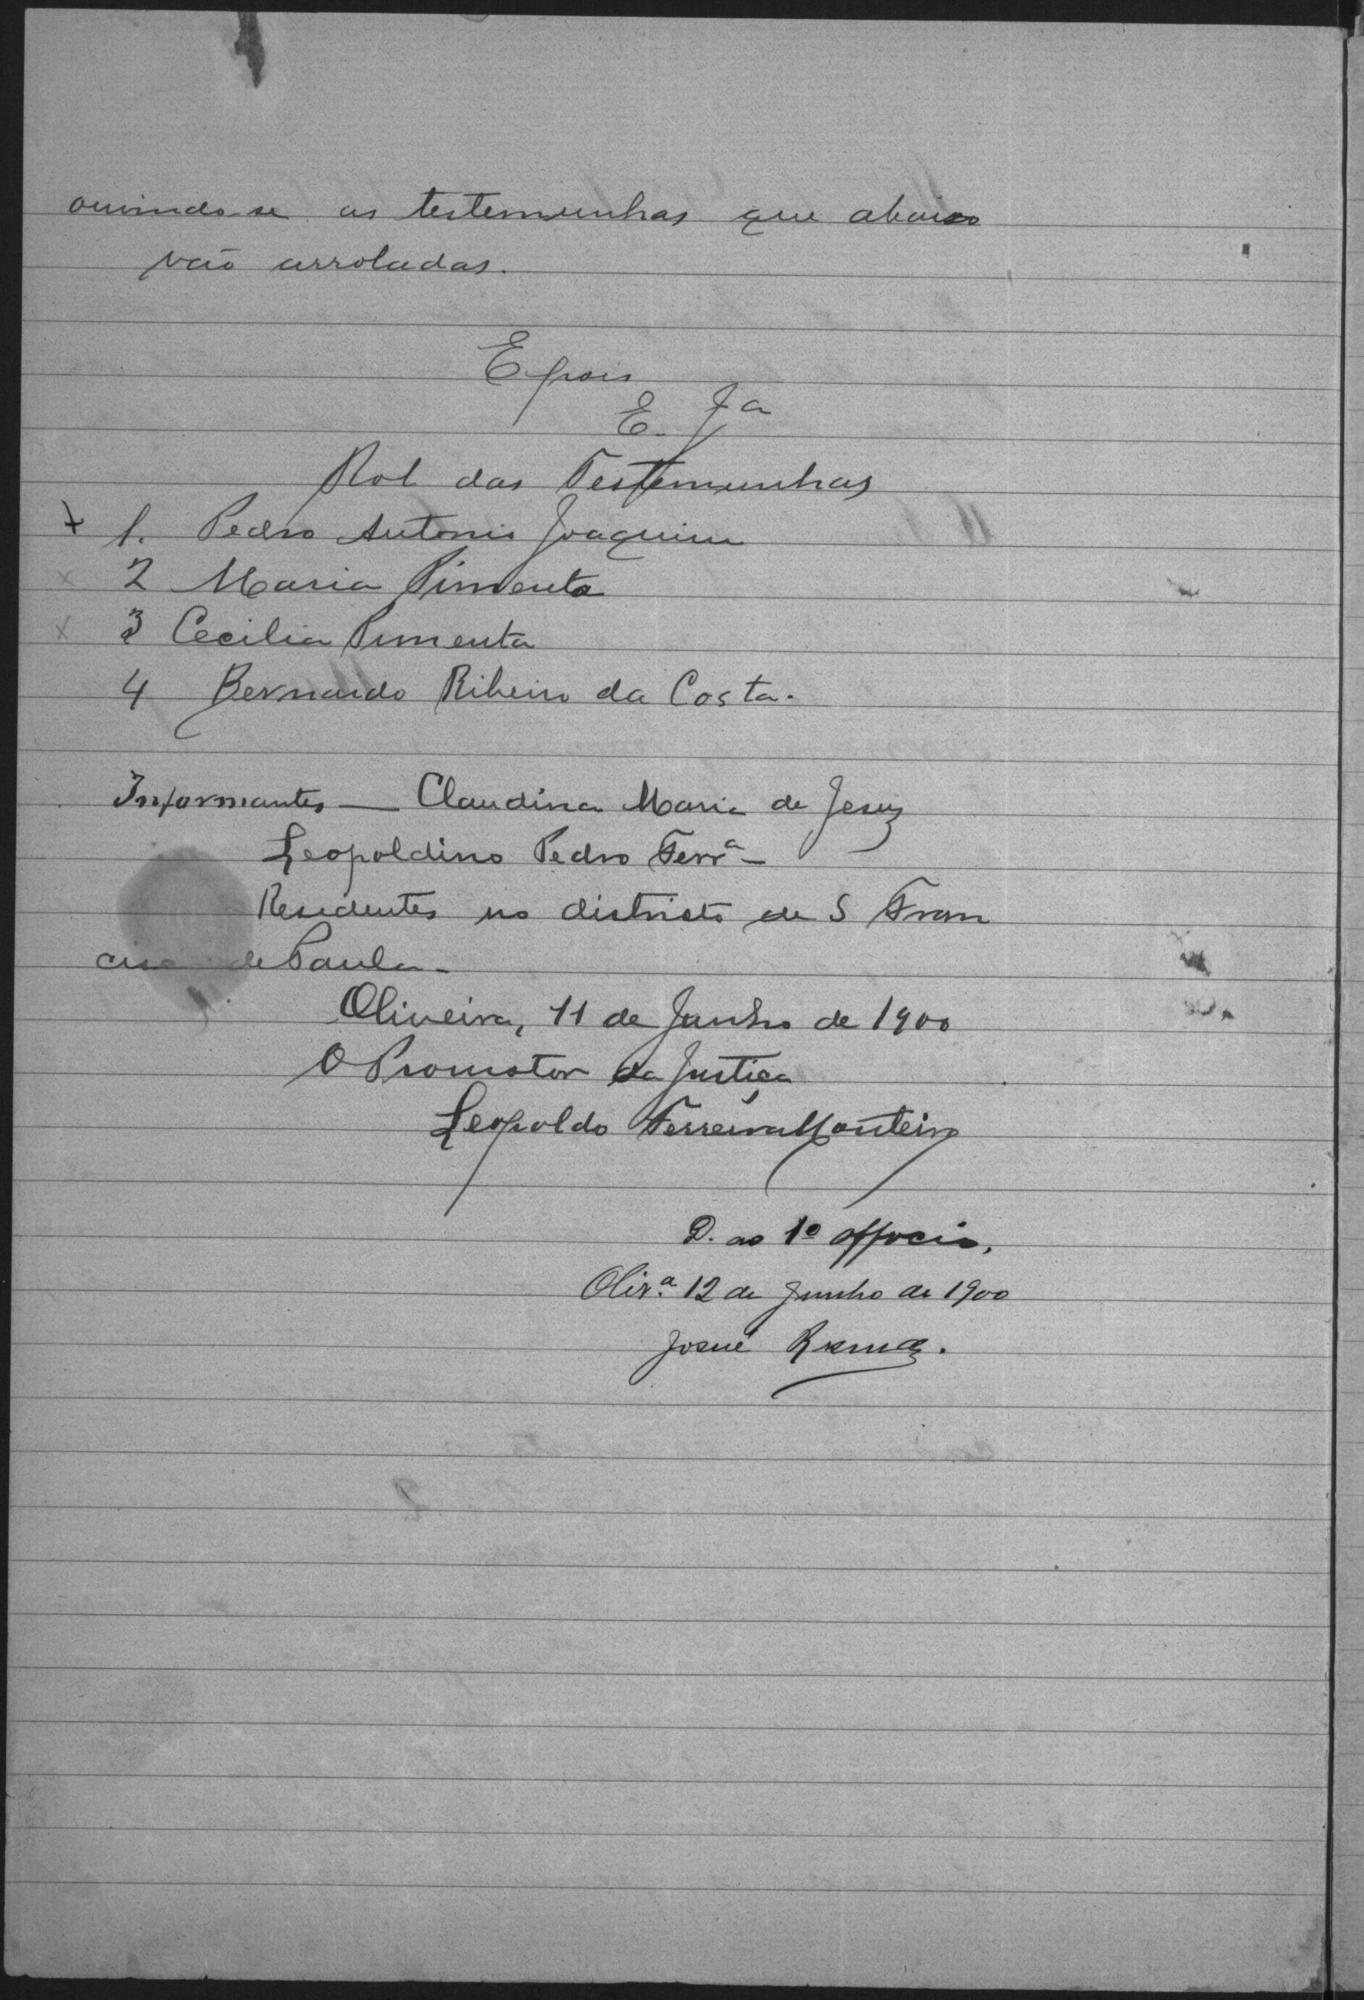 ouvindo-se as testemunhas que abaixo
vão arroladas.
E pois
E. Jª
Rol das Testemunhas
x 1. Pedro Antonio Joaquim
x 2 Maria Pimenta
x 3 Cecilia Pimenta
4 Bernardo Ribeiro da Costa.
Informantes — Claudina Maria de Jesus
Leopoldino Pedro Ferrª —
Residentes no districto de S Fran
cisco de Paula —
Oliveira, 11 de Junho de 1900
O Promotor da Justiça
Leopoldo Ferreira Monteiro
D. ao 1º officio,
Olivª. 12 de Junho de 1900
Josué